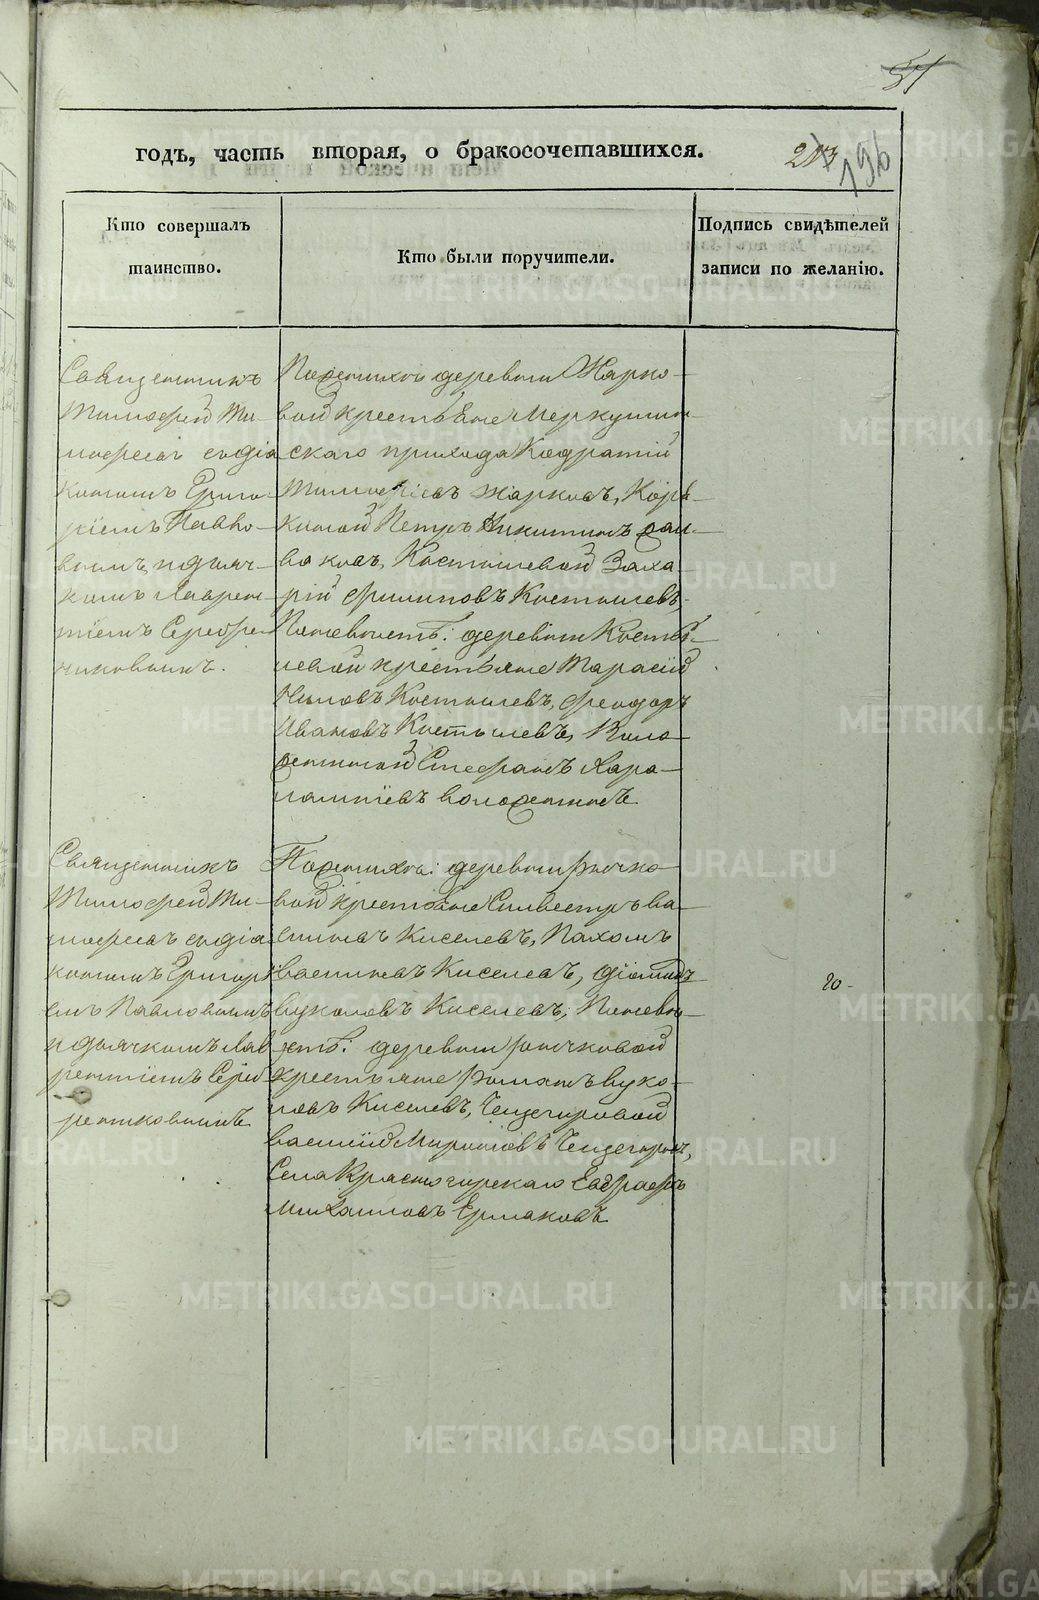 51
годъ, часть вторая, о бракосочетавшихся.
213
196
Кто совершалъ
таинство.
Кто были поручители.
Подпись свидѣтелей
записи по желанію.
Священникъ
Тимофей Ти-
мофеевъ съ діа
кономъ Григо-
ріемъ Павло-
вымъ, и дьяч-
комъ Лаврен-
тіемъ Серебре-
никовымъ.
По женихѣ деревни Жарко-
вой крестьяне Меркушин
скаго прихода Кодратій
Тимофѣевъ Жарковъ,
Петръ Никитинъ
Костылевой Заха-
рій Филиповъ Костылевъ,
По невѣстѣ: деревни Косты-
левой крестьяне Тарасій
Костылевъ, Феодоръ
Ивановъ Костылевъ, Воло-
жениной Стефанъ Хара-
лампіевъ Воложенинъ
Священникъ
Тимофей Ти-
мофеевъ съ діа
кономъ Григорі
емъ Павловымъ
и дьячкомъ Лав
рентіемъ Сереб
рениковымъ
По женихѣ: деревни Рычко-
вой крестьяне Силвестръ Ва-
силіевъ Киселевъ, Пахомъ
Васильевъ Киселевъ, Діомидъ
Вуколовъ Киселевъ, По невѣ-
стѣ: деревни Рычковой
крестьяне Романъ Вуко-
ловъ Киселевъ, Чещегоровой
Василій Мироновъ Чещегоровъ,
Села Красногорскаго Евграфъ
Михаиловъ Ермаковъ
20-
METRIKI.GASO-URAL.RU